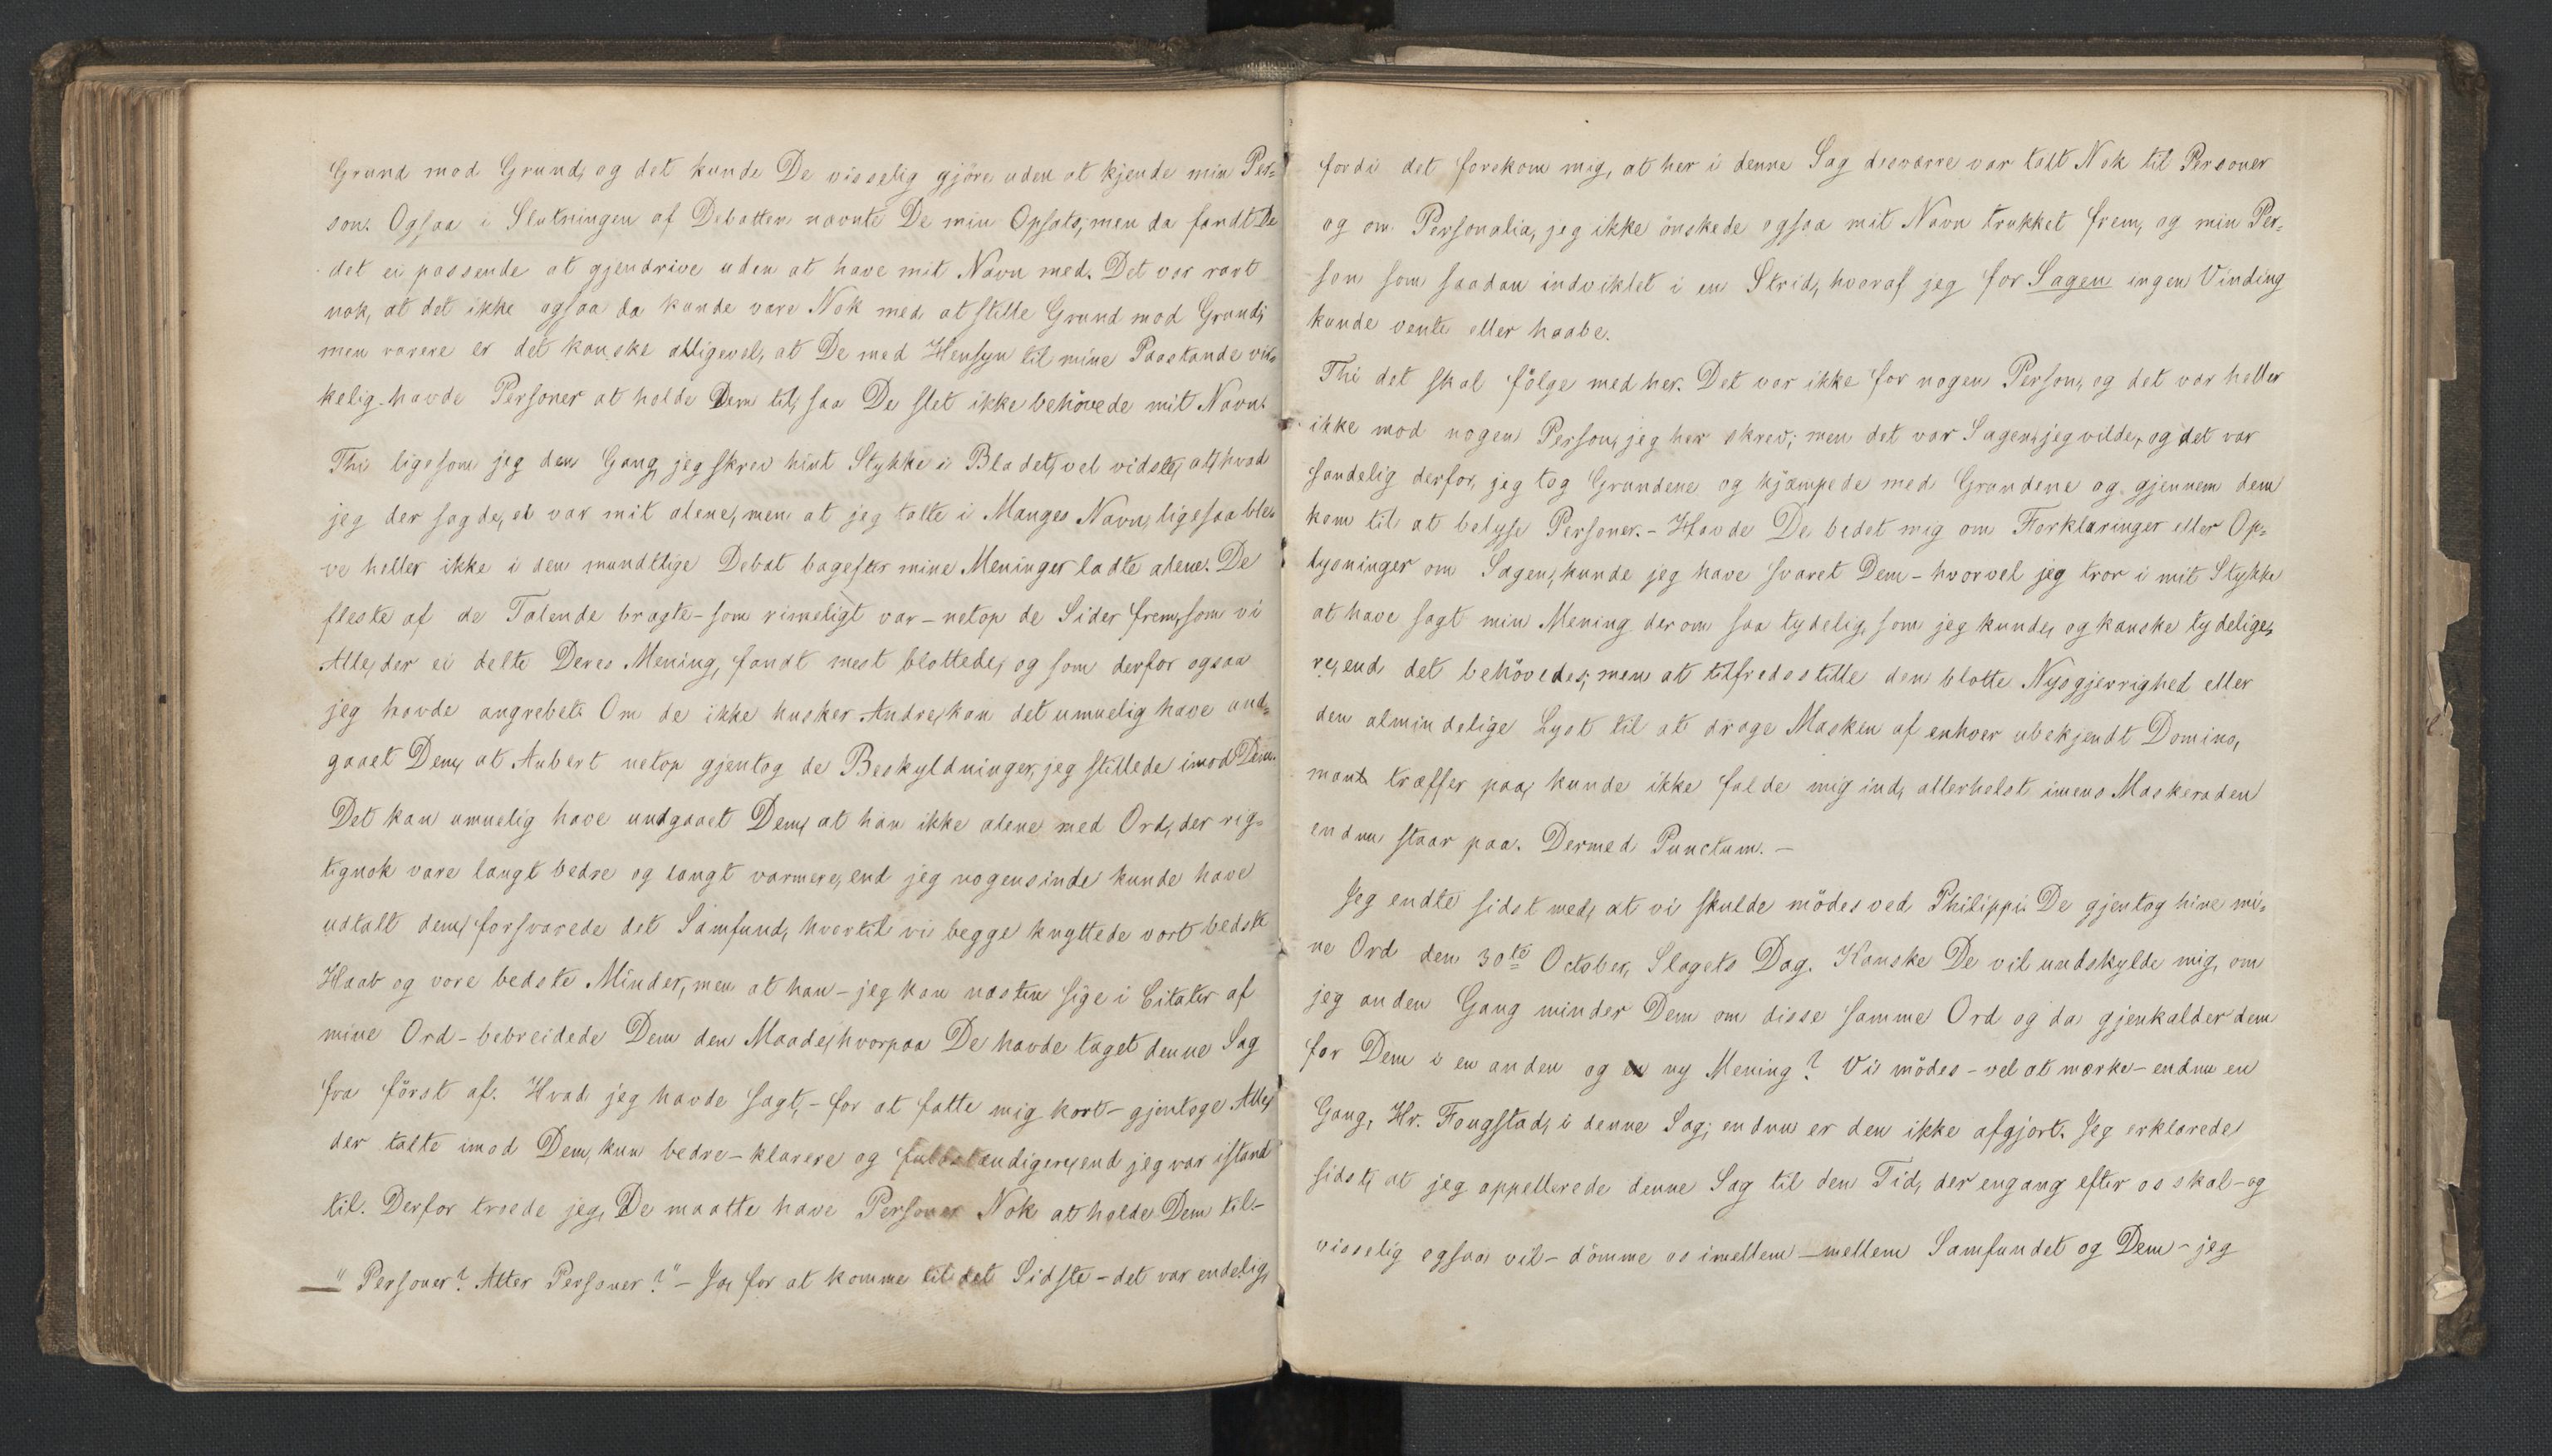 Grund mod Grund, og det kunde De visselig gjöre uden at kjende min Per=
son. Ogsaa i Slutningen af Debatten nævnte De min Opsats, men da fandt De
det ei passende at gjendrive uden at have mit Navn med. Det var rart
nok, at det ikke ogsaa da kunde være Nok med at stille Grund mod Grund;
men rarere er det kanske alligevel, at De med Hensyn til mine Paastande vir=
kelig havde Personer at holde Dem til, saa De slet ikke behövede mit Navn.
Thi ligesom jeg den Gang, jeg skrev hint Stykke i Bladet, vel vidste, at, hvad
jeg der sagde, ei var mit alene, men at jeg talte i Manges Navn, ligesaa ble=
ve heller ikke i den mundtlige Debat bagefter mine Meninger ladte alene. De
fleste af de Talende bragte – som rimeligt var – netop de Sider frem, som vi
Alle, der ei delte Deres Mening, fandt mest blottede, og som derfor ogsaa
jeg havde angrebet. Om de ikke husker Andre, kan det umuelig have und=
gaaet Dem, at Aubert netop gjentog de Beskyldninger, jeg stillede imod Dem.
Det kan umuelig have undgaaet Dem, at han ikke alene med Ord, der rig=
tignok vare langt bedre og langt varmere, end jeg nogensinde kunde have
udtalt dem, forsvarede det Samfund, hvortil vi begge knyttede vort bedste
Haab og vore bedste Minder, men at han – jeg kan næsten sige i Citater af
mine Ord – bebreidede Dem den Maade, hvorpaa De havde taget denne Sag
fra först af. Hvad jeg havde sagt, – for at fatte mig kort – gjentoge Alle,
der talte imod Dem, kun bedre – klarere og fuldstændigere, end jeg var istand
til. Derfor troede jeg, De maatte have Personer Nok at holde Dem til. –
– " Personer? Atter Personer?" – Ja, for at komme til det Sidste – det var endelig,
fordi det forekom mig, at her i denne Sag desværre var talt Nok til Personer
og om Personalia, jeg ikke önskede ogsaa mit Navn trukket frem, og min Per=
son som saadan indviklet i en Strid, hvoraf jeg for Sagen ingen Vinding
kunde vente eller haabe.
Thi det skal fölge med her. Det var ikke for nogen Person, og det var heller
ikke mod nogen Person, jeg her skrev; men det var Sagen, jeg vilde, og det var
sandelig derfor, jeg tog Grundene og kjæmpede med Grundene og gjennem dem
kom til at belyse Personer. – Havde De bedet mig om Forklaringer eller Op=
lysninger om Sagen, kunde jeg have svaret Dem – hvorvel jeg tror i mit Stykke
at have sagt min Mening derom saa tydelig, som jeg kunde, og kanske tydelige=
re, end det behövedes; men at tilfredsstille den blotte Nysgjerrighed eller
den almindelige Lyst til at drage Masken af enhver ubekjendt Domino,
man træffer paa, kunde ikke falde mig ind, allerhelst imens Maskeraden
endnu staar paa. Dermed Punctum. –
Jeg endte sidst med, at vi skulde mödes ved Philippi. De gjentog hine mi=
ne Ord den 30te October, Slagets Dag. Kanske De vil undskylde mig, om
jeg anden Gang minder Dem om disse samme Ord og da gjenkalder dem
for Dem i en anden og en ny Mening? Vi mödes – vel at mærke – endnu en
Gang, Hr. Fougstad, i denne Sag; endnu er den ikke afgjort. Jeg erklærede
sidst, at jeg appellerede denne Sag til den Tid, der engang efter os skal – og
visselig ogsaa vil – dömme os imellem – mellem Samfundet og Dem – jeg